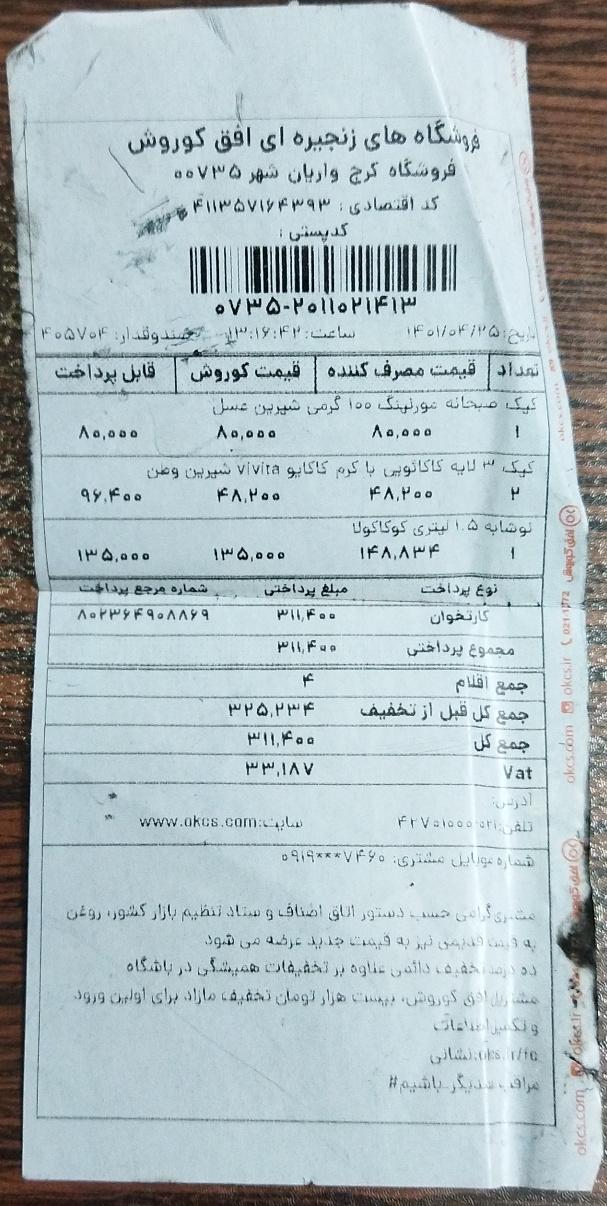 فروشگاه های زنجیره ای افق کوروش
فروشگاه کرج واریان شهر ۰۰۷۳۵
کد اقتصادی : ۴۱۱۳۵۷۱۶۴۳۹۳
کدپستی :
۰۷۳۵-۲۰۱۱۰۲۱۴۱۳
تاریخ: ۱۴۰۱/۰۴/۲۵ ساعت: ۱۳:۱۶:۴۲ صندوقدار: ۴۰۵۷۰۴
تعداد قیمت مصرف کننده قیمت کوروش قابل پرداخت
کیک صبحانه مورنینگ ۱۰۰ گرمی شیرین عسل
۱ ۸۰,۰۰۰ ۸۰,۰۰۰ ۸۰,۰۰۰
کیک ۳ لایه کاکائویی با کرم کاکایو vivita شیرین وطن
۲ ۴۸,۲۰۰ ۴۸,۲۰۰ ۹۶,۴۰۰
نوشابه ۱.۵ لیتری کوکاکولا
۱ ۱۴۸,۸۳۴ ۱۳۵,۰۰۰ ۱۳۵,۰۰۰
نوع پرداخت مبلغ پرداختی شماره مرجع پرداخت
کارتخوان ۳۱۱,۴۰۰ ۸۰۲۳۶۴۹۰۸۸۶۹
مجموع پرداختی ۳۱۱,۴۰۰
جمع اقلام ۴
جمع کل قبل از تخفیف ۳۲۵,۲۳۴
جمع کل ۳۱۱,۴۰۰
Vat ۳۳,۱۸۷
آدرس:
تلفن: ۴۲۷۰۱۰۰۰-۰۲۱ سایت:www.okcs.com
شماره موبایل مشتری: ۰۹۱۹***۷۴۶۰
مشتری گرامی حسب دستور اتاق اصناف و ستاد تنظیم بازار کشور، روغن
به قیمت قدیمی نیز به قیمت جدید عرضه می شود
ده درصد تخفیف دائمی علاوه بر تخفیفات همیشگی در باشگاه
مشتریان افق کوروش، بیست هزار تومان تخفیف مازاد برای اولین ورود
و تکمیل اطلاعات
نشانی:okcs.ir/fc
مراقب همدیگر باشیم#
افق کوروش
okcs.com okcs.ir 021-1772
افق کوروش
okcs.com okcs.ir